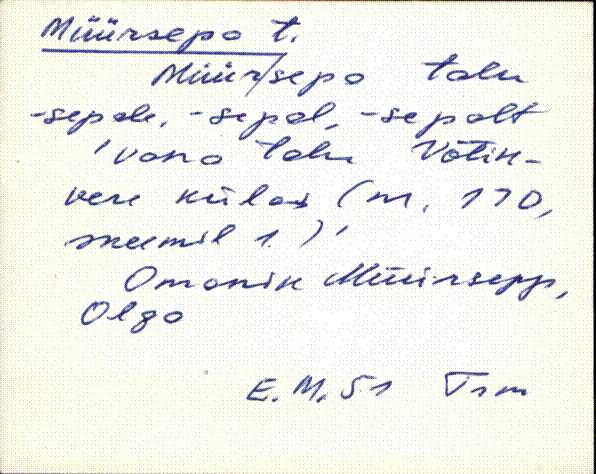 Müürsepa t.
Müür/sepa talu
-sepale, -sepal, -sepalt
'vana talu Võtik-
vere külas (m. 170,
skeemil 1.)'
Omanik Müürsepp,
Olga
E.M. 51 Trm